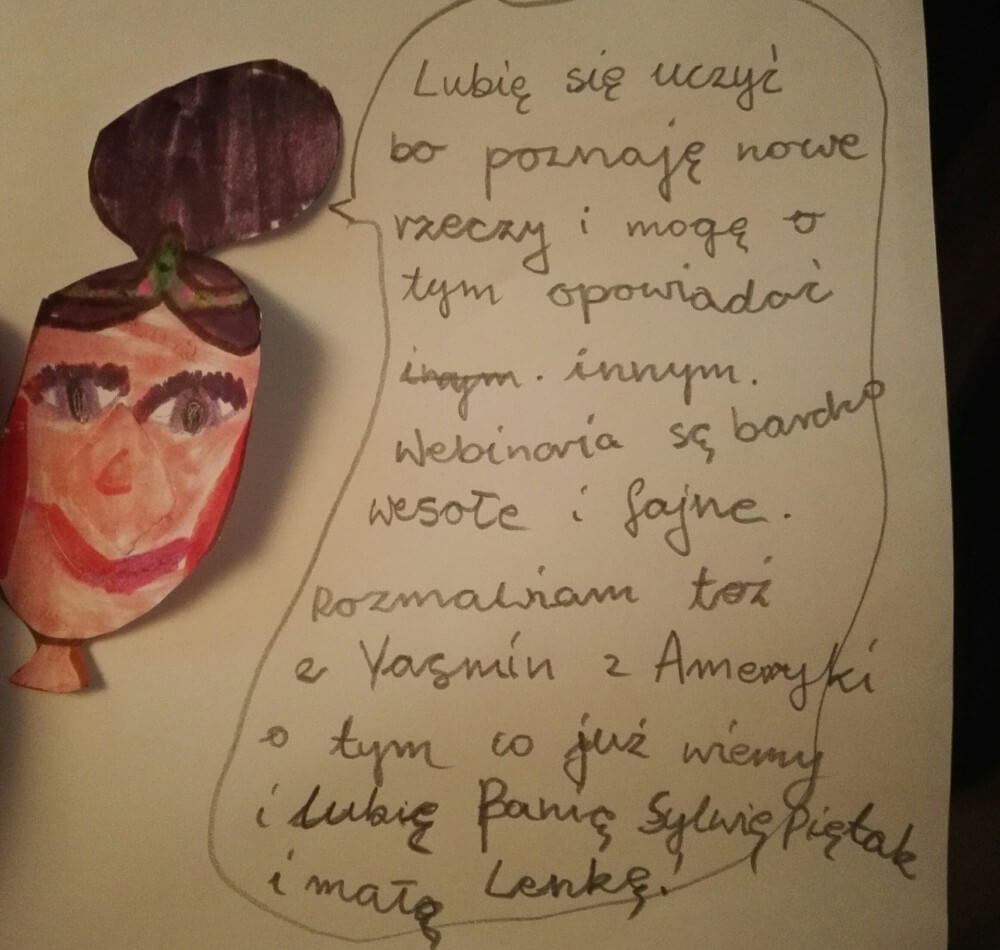 Lubię się uczyć
bo poznaję nowe
rzeczy i mogę o
tym opowiadać
innym.
Webinaria są bardzo
wesołe i fajne.
Rozmawiam też
z Yasmin z Ameryki
o tym co już wiemy
i lubię Panią Sylwię Piętak
i małą Lenkę!